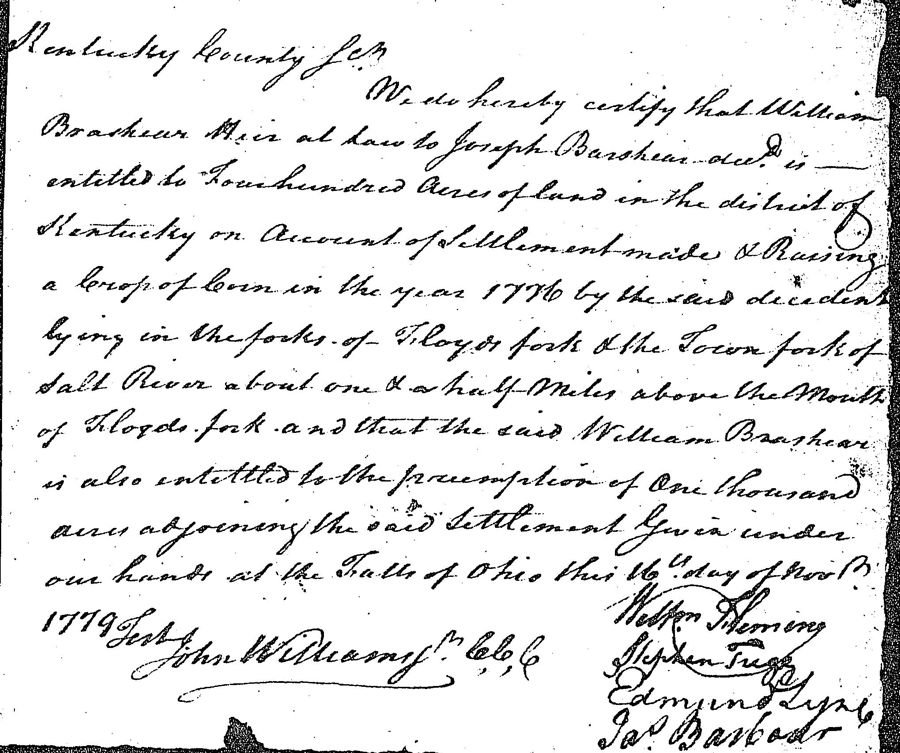 Kentucky County Sct
We do hereby certify that William
Brashear Heir at Law to Joseph Barshear decd. is —
entitled to Four hundred Acres of land in the district of
Kentucky on Account of Settlement made & Raising
a Crop of Corn in the year 1776 by the said decedent
lying in the forks of Floyds fork & the Town fork of
Salt River about one & a half Miles above the Mouth
of Floyds fork and that the said William Brashear
is also entettled to the preemption of One thousand
acres adjoining the said Settlement Given under
our hands at the Falls of Ohio this 16th day of Novr
1779 Test
John Williams Jr C,C,C
Wm Fleming
Stephen Trigg
Edmund Lyne
Jas. Barbour